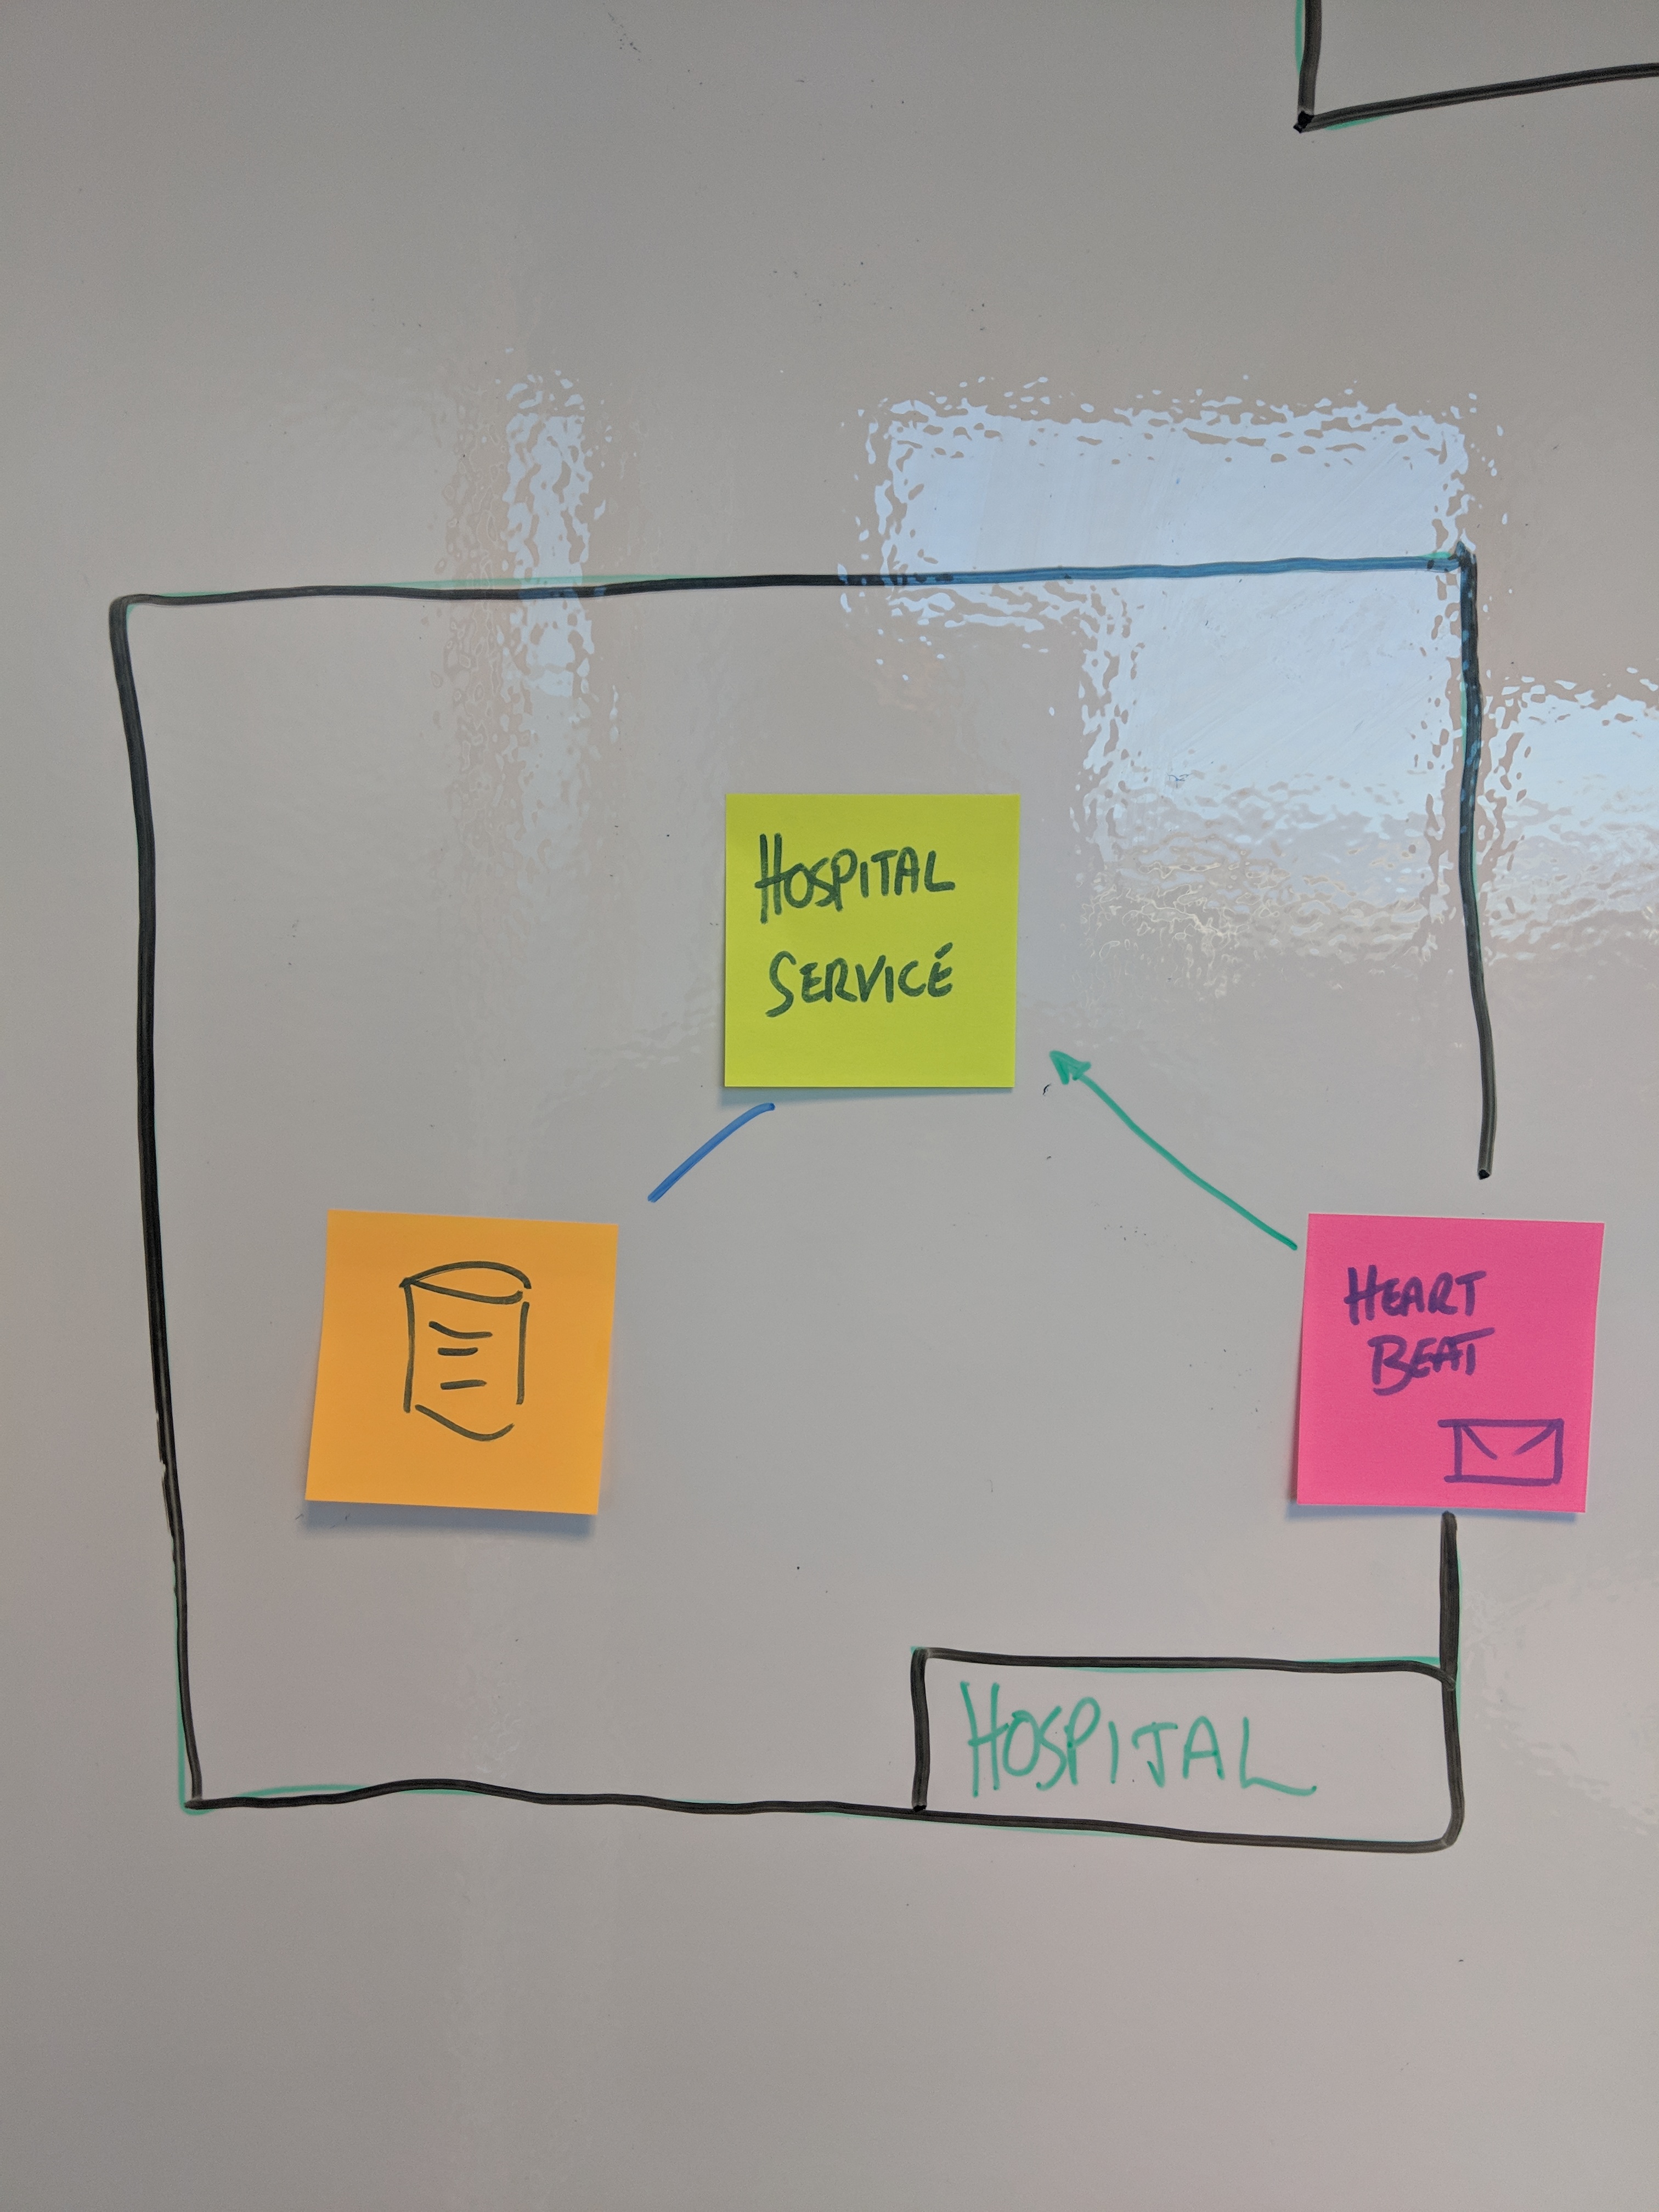 HOSPITAL
SERVICE
HEART
BEAT
HOSPITAL